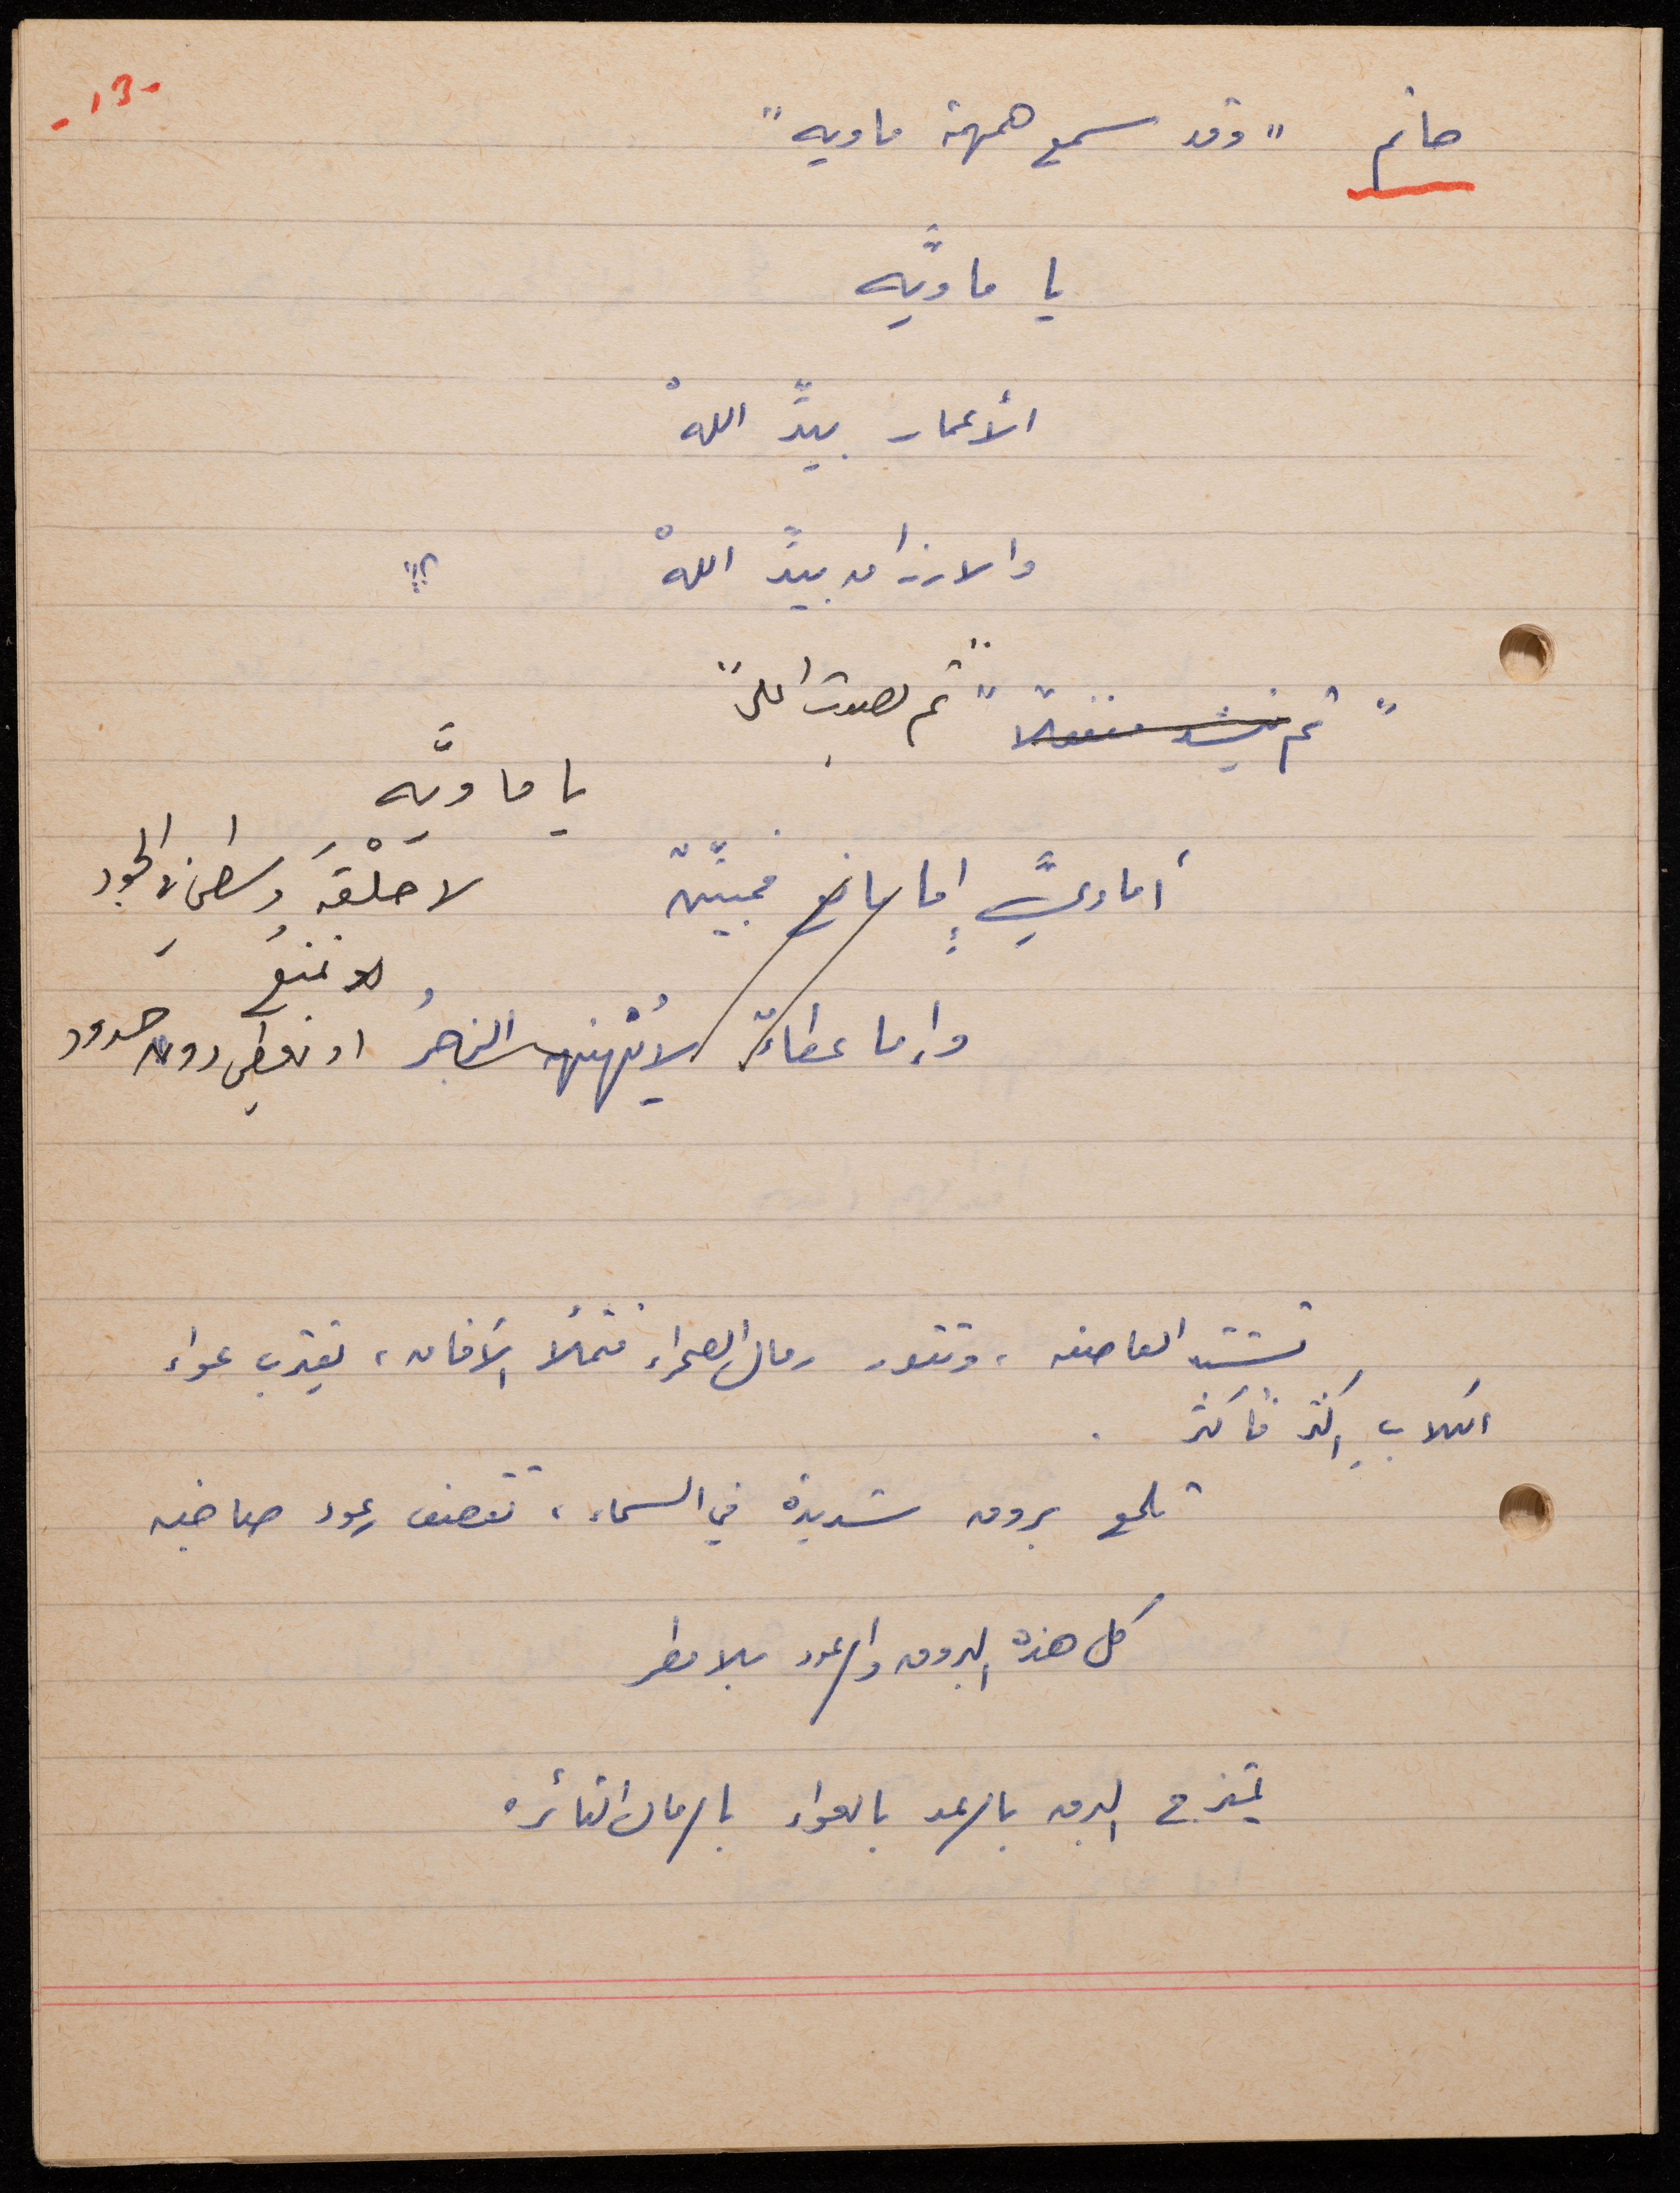 -13-
حاتم "وقد سمع همهمة ماويه"
يا ماويَّه
الأعمار بيدِّ اللهْ
والارزاق بيدِّ اللهْ !!؟
"ثم ينشد منفعلاً" "ثم بصوت اعلى"
يا ماويَّه
أماويَّ إما مانع فمبيّنٌ لا حَلْقَه وسطى في الجود
او نمنعُ
وإما عطاءٌ لا يُنَهْنِهه الزجرُ او نعطي دون حدود
تشتد العاصفه، وتثور رمال الصحراء فتملأ الآفاق، يقترب عواء
الكلاب اكثر فأكثر .
تلمع بروق شديدة في السماء، تقصف رعود صاخبه
كل هذه البروق والرعود بلا مطر
يمتزج البرق بالرعد بالعواء بالرمال الثائره